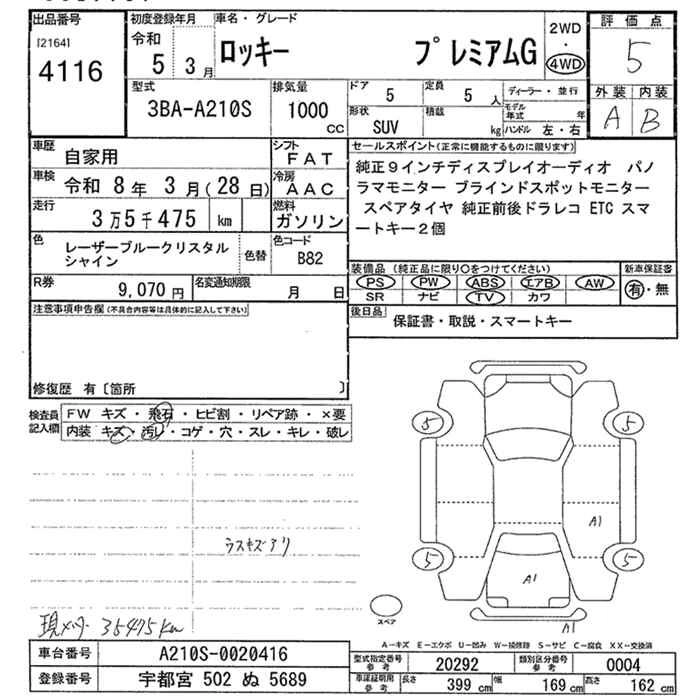 出品番号
[2164]
4116
初度登録年月
令和
5 3月
車名・グレード
ロッキー プレミアムG
2WD
・
4WD
評価点
5
外装 内装
A B
型式
3BA-A210S
排気量
1000
cc
ドア 5
定員 5 人
ディーラー・並行
形状 SUV
積載 kg
モデル年式 年
ハンドル 左・右
車歴 自家用
シフト FAT
車検 令和 8年 3月(28日)
冷房 AAC
走行 3万5千475 km
燃料 ガソリン
色 レーザーブルークリスタルシャイン
色替
色コード B82
R券 9,070円
名変通知期限 月 日
セールスポイント(正常に機能するものに限ります)
純正9インチディスプレイオーディオ パノ
ラマモニター ブラインドスポットモニター
スペアタイヤ 純正前後ドラレコ ETC スマ
ートキー2個
装備品(純正品に限り○をつけてください)
PS PW ABS エアB AW
SR ナビ TV カワ
新車保証書
有・無
後日品
保証書・取説・スマートキー
注意事項申告欄(不具合内容等は具体的に記入して下さい)
修復歴 有〔箇所 〕
検査員記入欄
FW キズ・飛石・ヒビ割・リペア跡・×要
内装 キズ・汚レ・コゲ・穴・スレ・キレ・破レ
ラスキズアリ
現メーター 35475km
5 5
A1
5 5
A1
スペア
A1
A-キズ E-エクボ U-凹み W-補修跡 S-サビ C-腐食 XX-交換済
車台番号 A210S-0020416
登録番号 宇都宮 502 ぬ 5689
型式指定番号参考 20292
類別区分番号参考 0004
車庫証明用参考 長さ 399cm 幅 169cm 高さ 162cm